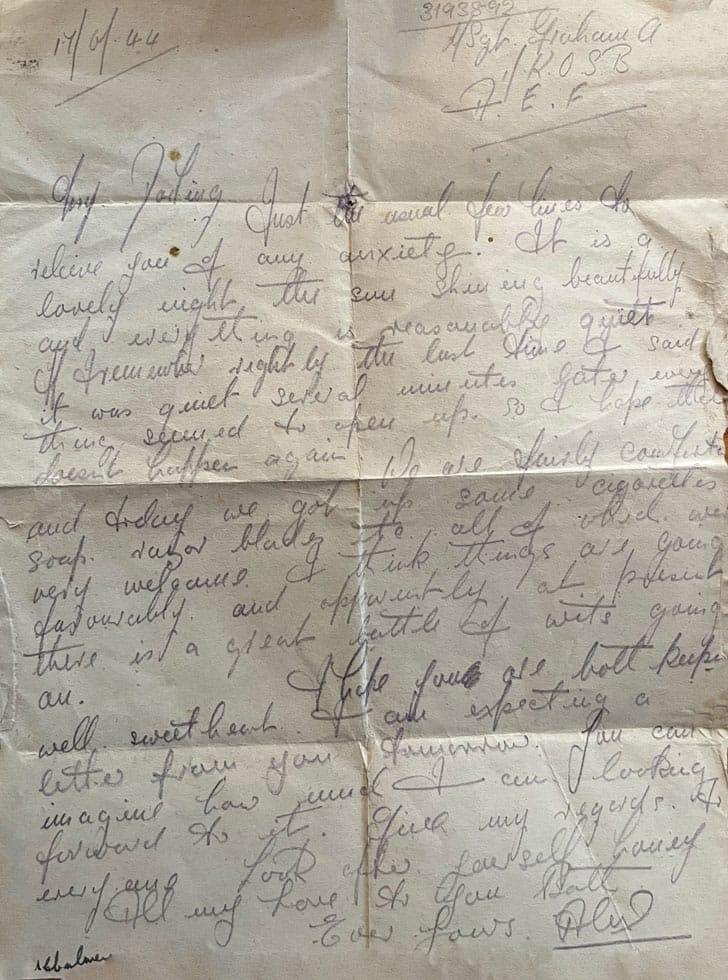 17/6/44
3193892
A/Sgt. Graham A
1/K.O.S.B
A. E. F
My Darling Just the usual few lines to
relieve you of any anxiety. It is a
lovely night, the sun shining beautifully
and everything is reasonable quiet
If I remember rightly the last time I said
it was quiet several minutes later every
thing seemed to open up. so I hope that
doesn't happen again We are fairly
and today we got up some cigarettes
soap. razor blades etc. all of which were
very welcome. I think things are going
favourably and apparently at present
there is a great battle of wits going
on. I hope you are both keeping
well sweetheart. I am expecting a
letter from you tomorrow. You can
imagine how much I am looking
forward to it. Give my regards to
everyone look after yourself honey
All my love to you Both
Ever Yours.